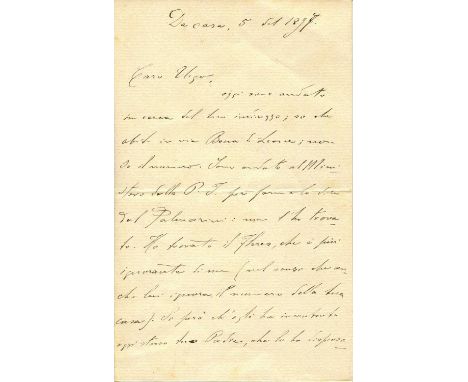 Da casa, 5 set 1897.
Caro Ugo,
oggi sono andato
in cerca del tuo indirizzo; so che
abiti in via Bocca di Leone; non
so il numero. Sono andato al Mini
stero della P. I. per farmelo dire
dal Palmarini: non l'ho trova
to. Ho trovato il Fleres, che è più
ignorante di me (nel senso che an
che lui ignora il numero della tua
casa). So però ch'egli ha incontrato
ogi stesso tuo Padre, che lo ha